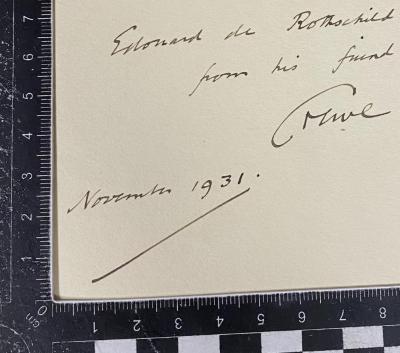 Edouard de Rothschild
from his friend
Crewe
November 1931.
7
6
5
4
3
2
1
0
cm
1 2 3 4 5 6 7 8